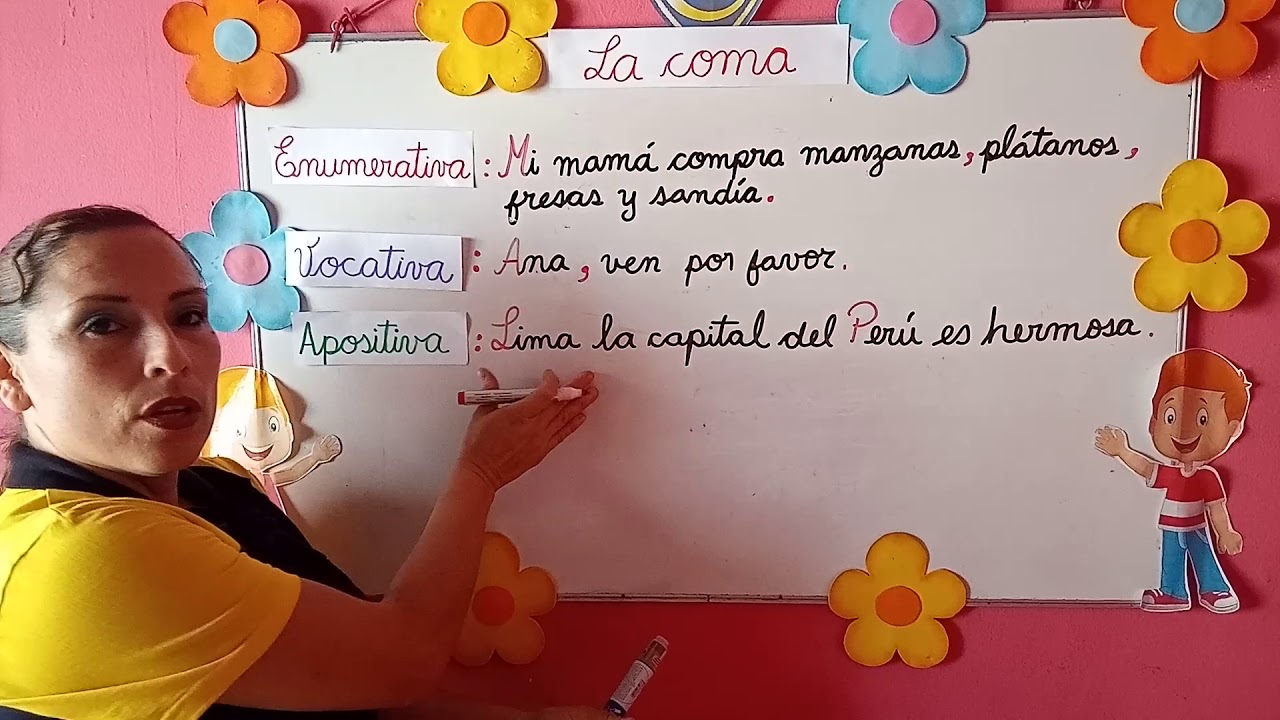 La coma
Enumerativa : Mi mamá compra manzanas, plátanos,
fresas y sandía.
Vocativa : Ana, ven por favor.
Apositiva : Lima la capital del Perú es hermosa.